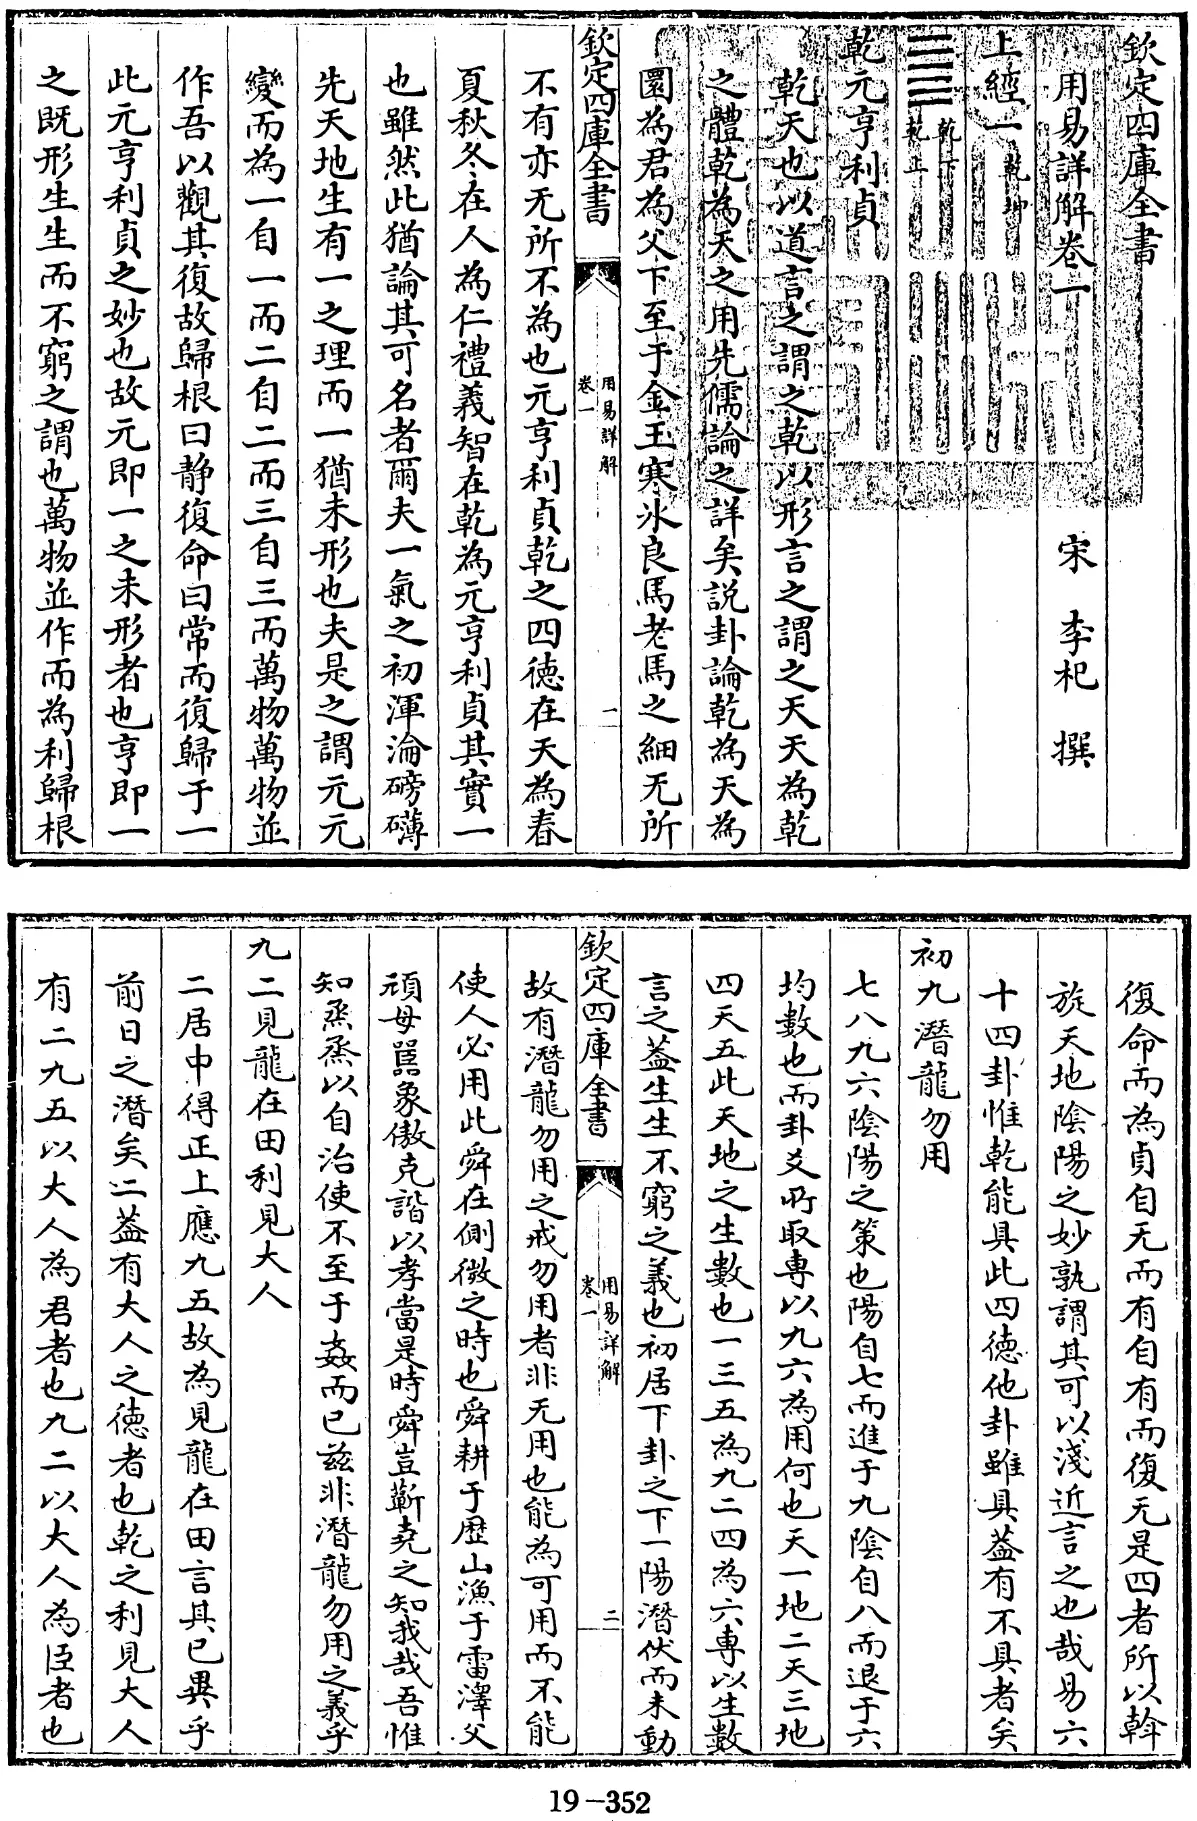 欽定四庫全書
用易詳解卷一
宋 李杞 撰
上經一 乾 坤
乾下
乾上
乾元亨利貞
乾天也以道言之謂之乾以形言之謂之天天為乾
之體乾為天之用先儒論之詳矣說卦論乾為天為
圜為君為父下至于金玉寒冰良馬老馬之細无所
欽定四庫全書
用易詳解
卷一
一
不有亦无所不為也元亨利貞乾之四德在天為春
夏秋冬在人為仁禮義智在乾為元亨利貞其實一
也雖然此猶論其可名者爾夫一氣之初渾淪磅礴
先天地生有一之理而一猶未形也夫是之謂元元
變而為一自一而二自二而三自三而萬物萬物並
作吾以觀其復故歸根曰静復命曰常而復歸于一
此元亨利貞之妙也故元即一之未形者也亨即一
之既形生生而不窮之謂也萬物並作而為利歸根
復命而為貞自无而有自有而復无是四者所以斡
旋天地陰陽之妙孰謂其可以淺近言之也哉易六
十四卦惟乾能具此四德他卦雖具葢有不具者矣
初九潛龍勿用
七八九六陰陽之策也陽自七而進于九陰自八而退于六
均數也而卦爻所取專以九六為用何也天一地二天三地
四天五此天地之生數也一三五為九二四為六專以生數
言之葢生生不窮之義也初居下卦之下一陽潛伏而未動
欽定四庫全書
用易詳解
卷一
二
故有潛龍勿用之戒勿用者非无用也能為可用而不能
使人必用此舜在側微之時也舜耕于歷山漁于雷澤父
頑母嚚象傲克諧以孝當是時舜豈蘄堯之知我哉吾惟
知烝烝以自治使不至于姦而已兹非潛龍勿用之義乎
九二見龍在田利見大人
二居中得正上應九五故為見龍在田言其已異乎
前日之潛矣二葢有大人之德者也乾之利見大人
有二九五以大人為君者也九二以大人為臣者也
19-352